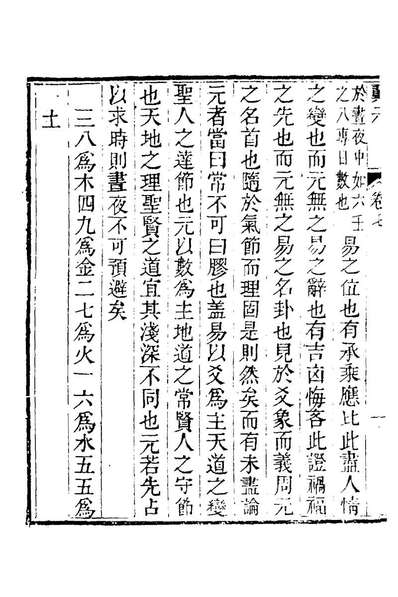 翼元 卷七 一
於晝夜中如六壬
之八專日數也
易之位也有承乘應比此盡人情
之變也而元無之易之辭也有吉凶悔吝此證禍福
之先也而元無之易之名卦也見於爻象而義周元
之名首也隨於氣節而理固是則然矣而有未盡論
元者當曰常不可曰膠也蓋易以爻爲主天道之變
聖人之達節也元以數爲主地道之常賢人之守節
也天地之理聖賢之道宜其淺深不同也元若先占
以求時則晝夜不可預避矣
三八爲木四九爲金二七爲火一六爲水五五爲
土